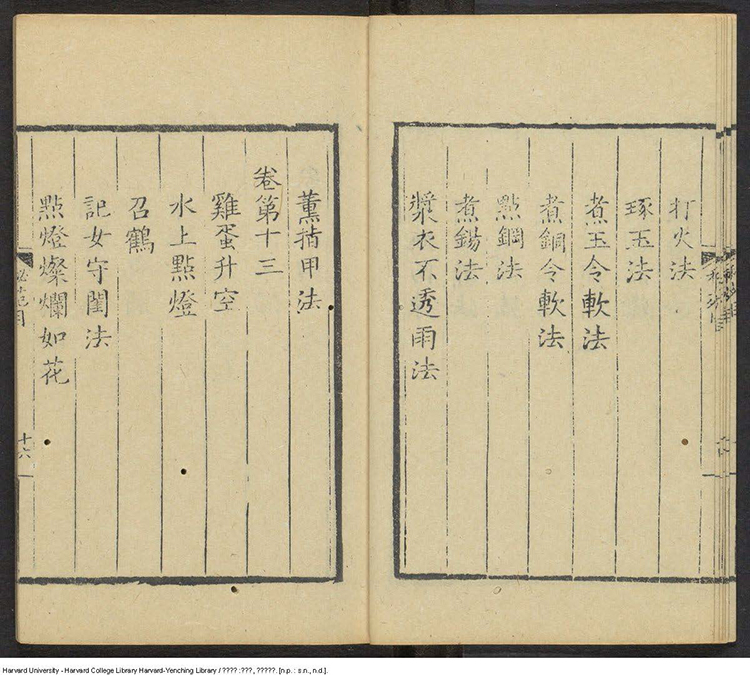 打火法
琢玉法
煮玉令軟法
煮銅令軟法
點鋼法
煮錫法
漿衣不透雨法
薰指甲法
卷第十三
雞蛋升空
水上點燈
召鶴
記女守閨法
點燈燦爛如花
十六
Harvard University - Harvard College Library Harvard-Yenching Library / ???? :???, ?????. [n.p. : s.n., n.d.].